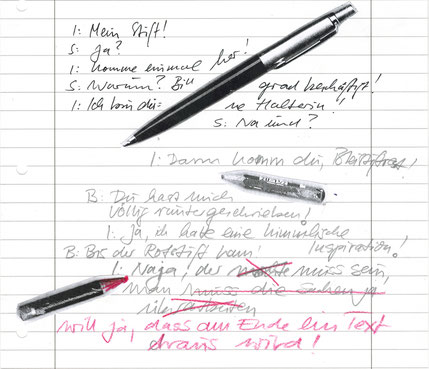 I: Mein Stift!
S: Ja?
I: Komme einmal her!
S: Warum? Bin grad beschäftigt!
I: Ich bin dei- ne Halterin!
S: Na und?
I: Dann komm du, Bleistiftrest!
B: Du hast mich
völlig runtergeschrieben!
I: Ja, ich habe eine himmlische
Inspiration!
B: Bis der Rotstift kam!
I: Naja, der muss sein,
man muss die Sachen ja
überarbeiten
will ja, dass am Ende ein Text
draus wird!